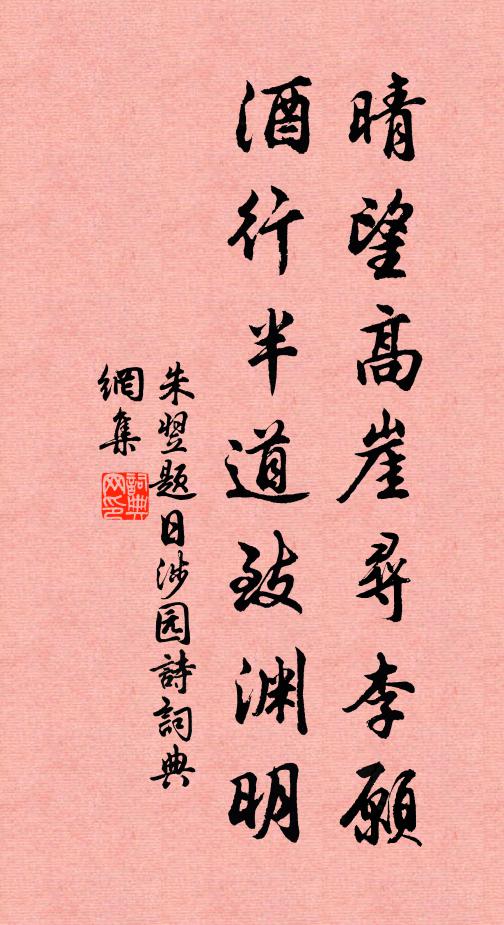 晴望高崖尋李愿
酒行半道致渊明
朱翌题日涉园詩詞典
網集
詞典
网印